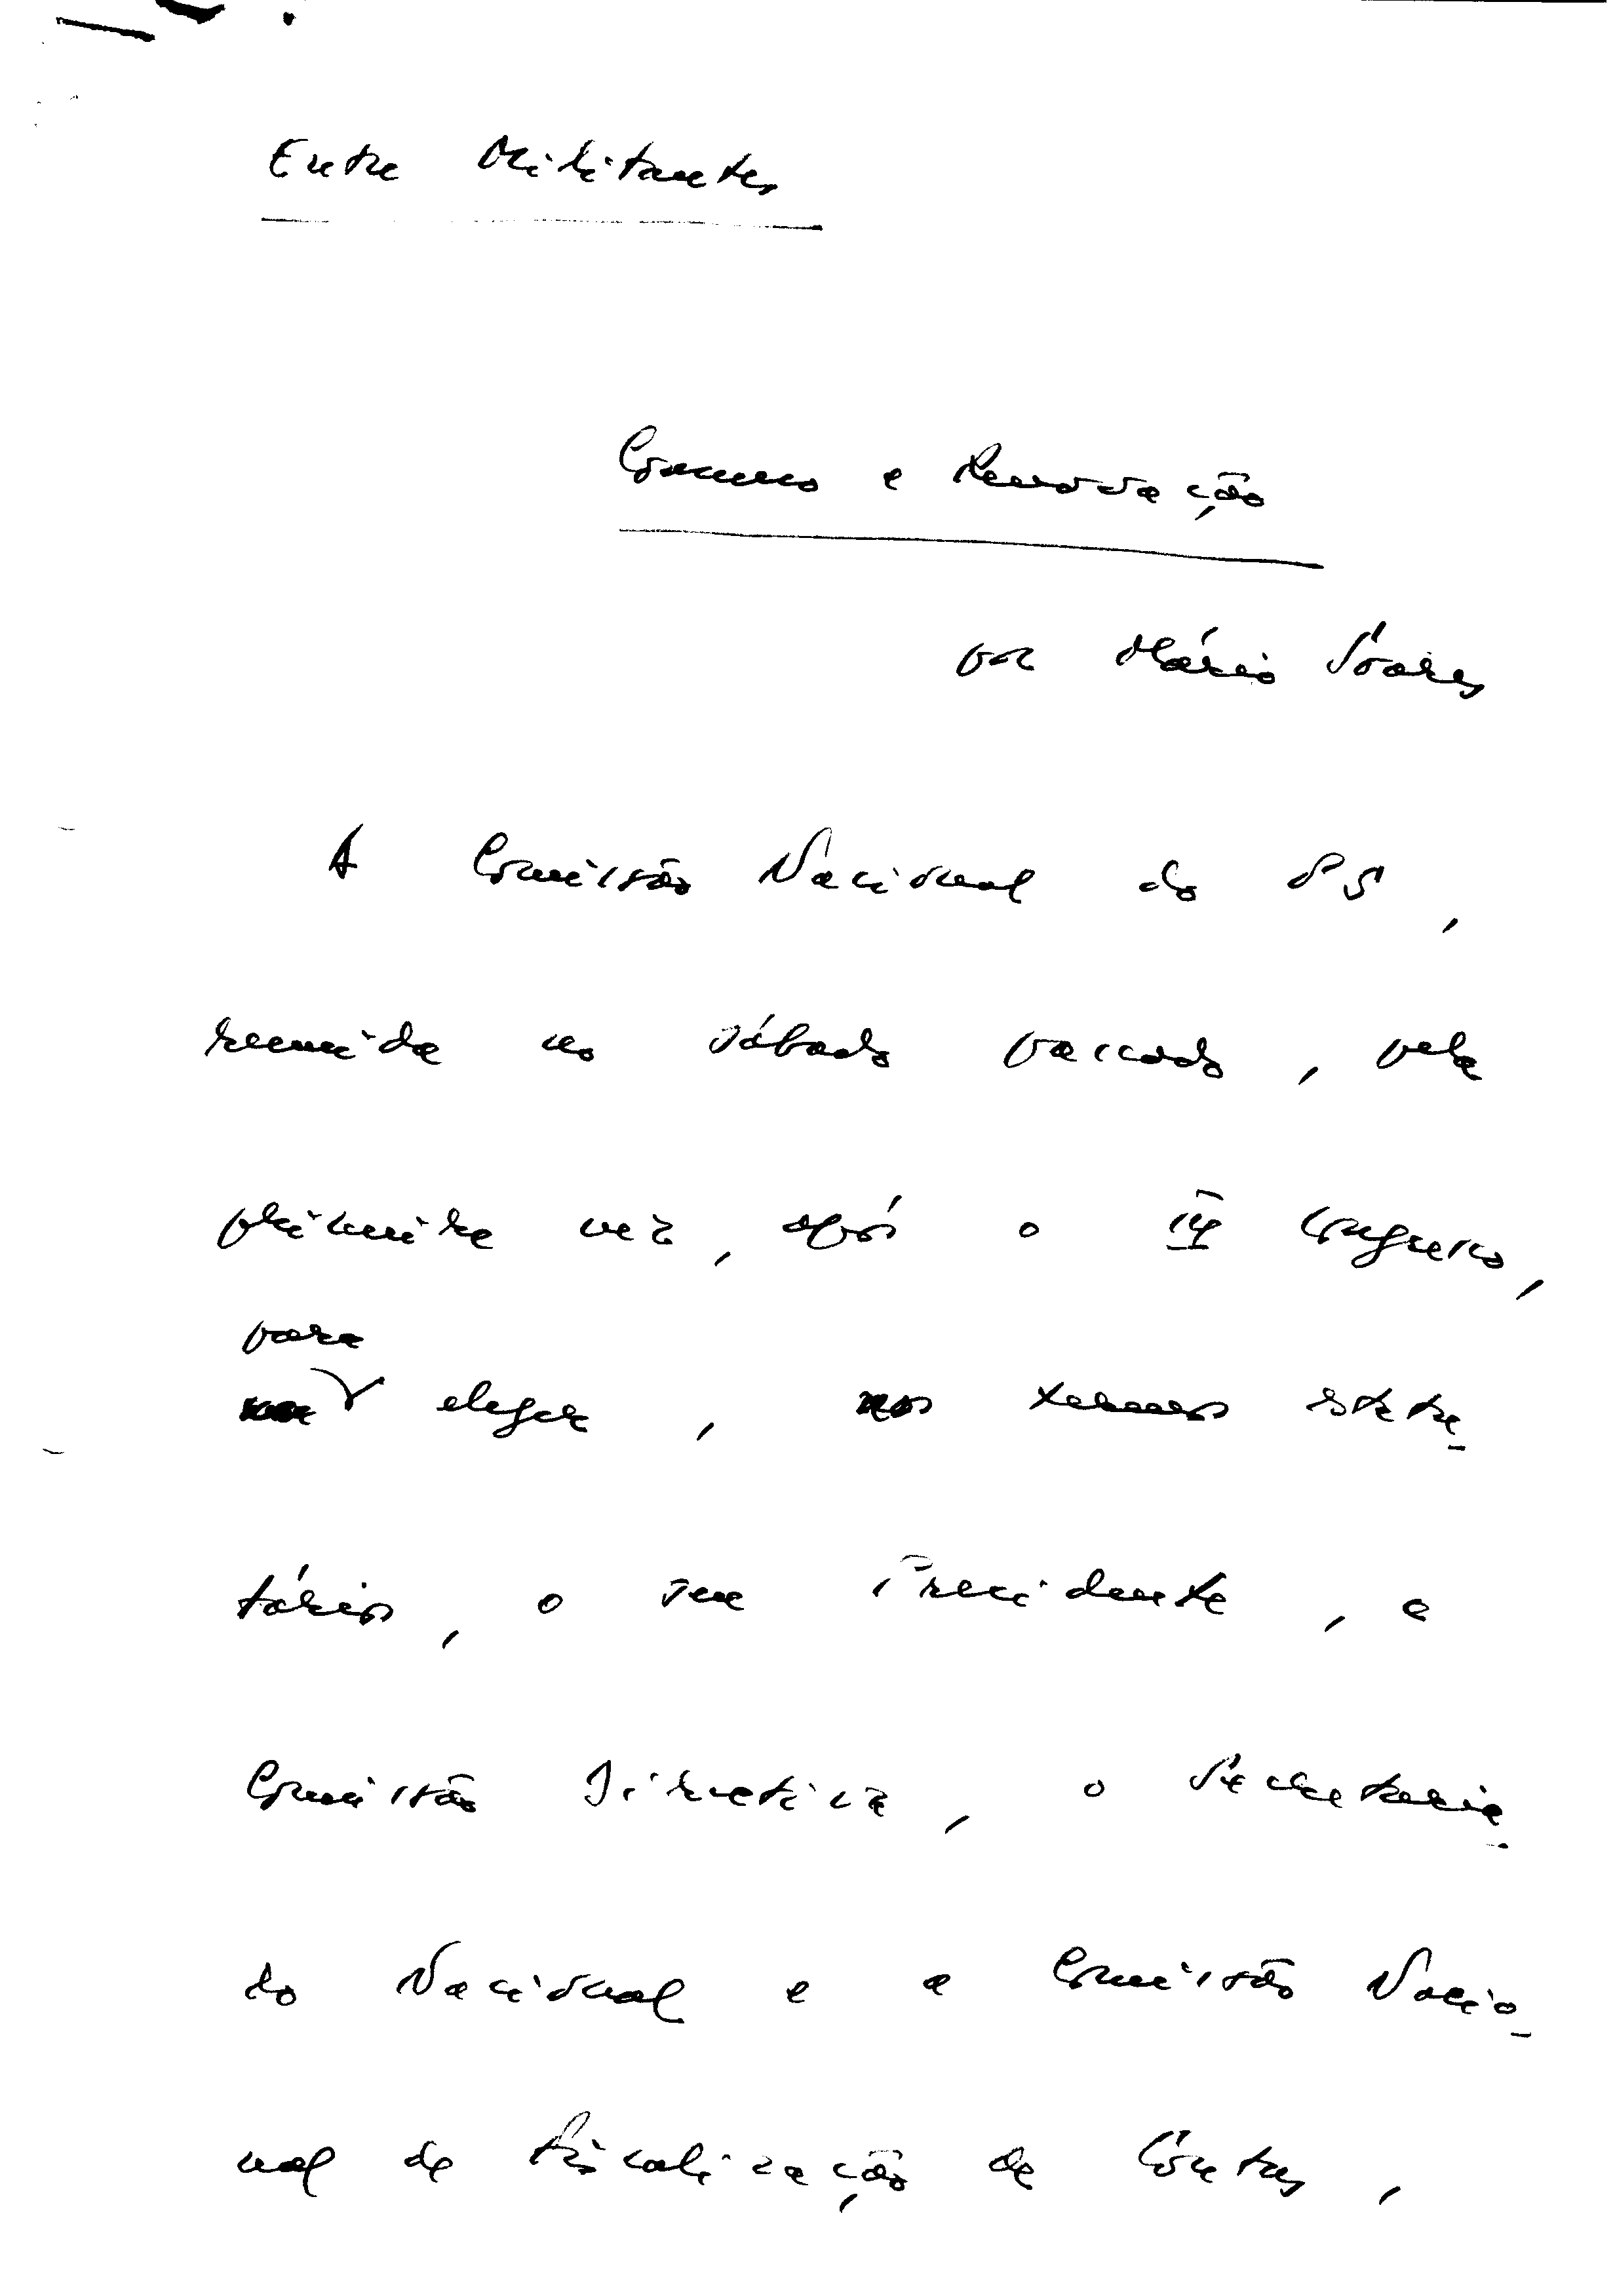 Entre Militantes
Congresso e Renovação
por Mário Soares
A Comissão Nacional do PS,
reunida no sábado passado, pela
primeira vez, após o IV Congresso,
para
elegeu, nos termos estatu-
tários, o seu Presidente, a
Comissão Directiva, o Secretaria-
do Nacional e a Comissão Nacio-
nal de Fiscalização de Contas,